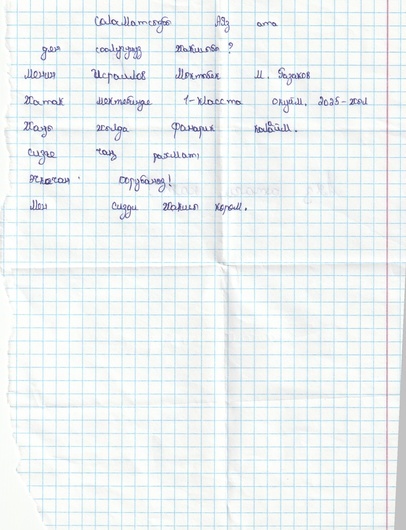 Саламатсызбы Аяз ата
ден соолугуңуз жакшыбы?
Менин Исраилов Мектбек М. Базаков
Жатак мектебинде 1-класста окуйм. 2025-жыл
Жаңы жылда Фонарик каалайм.
сизге чоң рахмат,
Эч качан оорубаңыз!
Мен сизди жакшы көрөм.